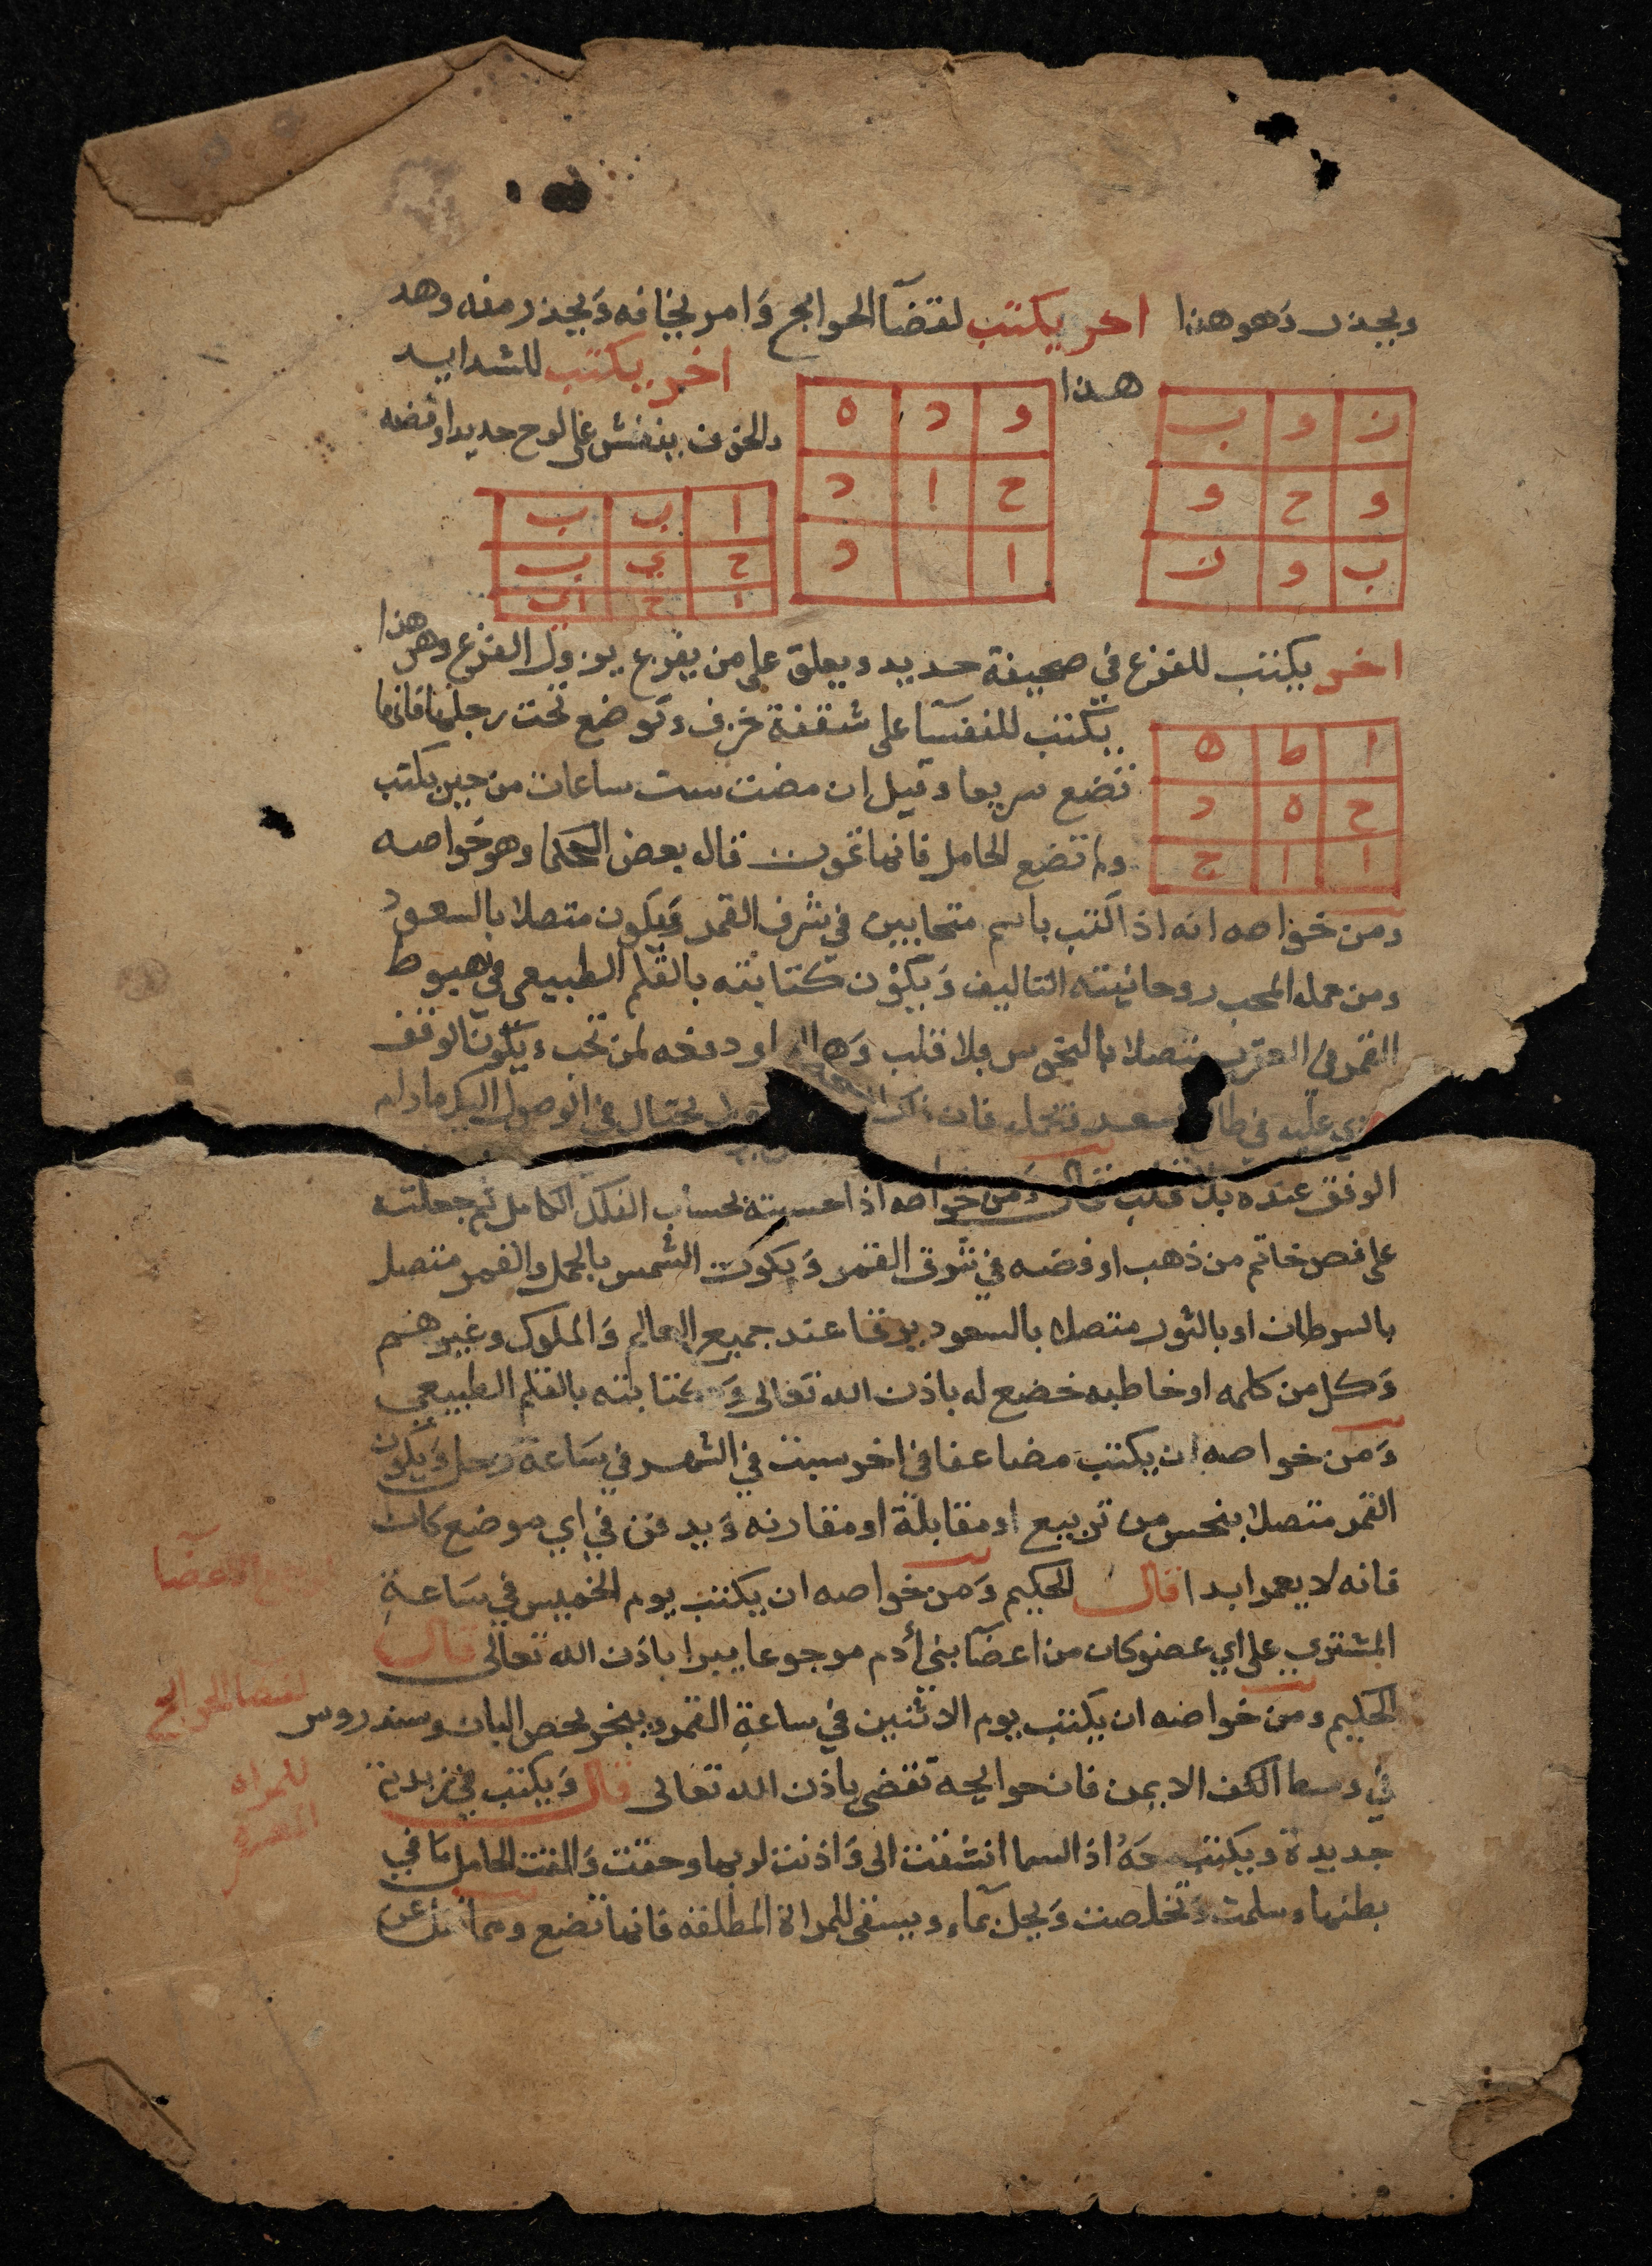 ويحذر وهو هذا اخر يكتب لقضآ الحوايج وَامر يخافه وَيحذر منه وهد
هذا
اخر يكتب للشدايد
والخوف ينقش على لوح حديد او فضه
ن و ب
و ح و
ب و ن
و د ه
ح ا د
ا د
ا ب ب
ح ي ب
ا ح
اخر يكتب للفزع في صحيفة حديد ويعلق على من يفزع يزول الفزع وهو هذا
يكتب للنفسآ على شقفة خزف وتوضع تحت رجلها فانها
تضع سريعا وقيل ان مضت ست ساعات من حين يكتب
ولم تضع الحامل فانها تموت قال بعض الحكما وهو خواصه
ا ط ه
ح ه د
ا ا ح
ومن خواصه انه اذا كتب باسم متحابين في شرف القمر وَيكون متصلا بالسعود
ومن عمله المحب روحانيته التاليف وَيكون كتابته بالقلم الطبيعى في هبوط
القمر في العقرب متصلا بالنحوس بلا قلب او دفعه لمن تحب ويكون الوفق
عليه في سعد تحمله فان يحتال في الوصول اليك مادام
الوفق عنده بلا قلب قال وَمن خواصه اذا حسبته بحساب الفلك الكامل ثم جعلته
على فص خاتم من ذهب او فضه في شرق القمر وَيكون الشمس بالحمل والقمر متصل
بالسرطان او بالثور متصلا بالسعود عند جميع العالم وَالملوك وغيرهم
وَكل من كلمه او خاطبه خضع له باذن الله تعالى وَكتابته بالقلم الطبيعي
وَمن خواصه ان يكتب مضاعفا في اخر سبت في الشهر في سَاعة زحل وَيكون
القمر متصلا بنحس من تربيع او مقابلة او مقارنه وَيدفن في اي موضع كان
فانه لا يعمر ابدا قال الحكيم وَمن خواصه ان يكتب يوم الخميس في سَاعة
المشتري على اي عضو كان من اعضآ بني أدم موجوعا يبرا باذن الله تعالى قال
الحكيم ومن خواصه ان يكتب يوم الاثنين في ساعة القمر ويبخر بحصى البان وسندروس
في وسط الكف الايمن فان حوايجه تقضى باذن الله تعالى قال وَيكتب في زبدية
جديدة ويكتب حوله اذا السما انشقت الى وَاذنت لربها وحقت وَالقت الحامل مَا في
بطنها وسلمت وَتخلصت وَيحل بمآء ويسقى للمراة المطلقه فانها تضع ومما نقل عن
الاعضآ
لقضا الحوايج
للمراه